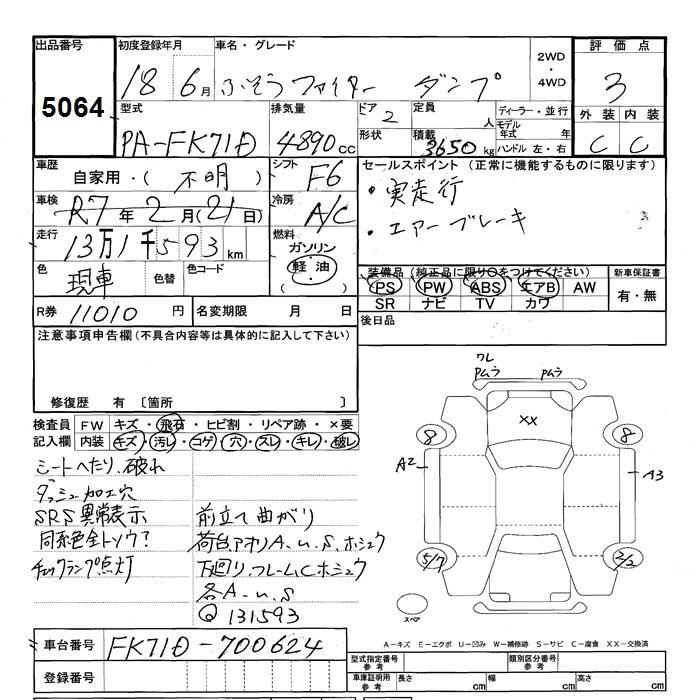 出品番号 初度登録年月 車名・グレード 2WD ・ 4WD 評価点
5064 18 6月 ふそうファイター ダンプ 3
型式 排気量 ドア 定員 人 ディーラー・並行 外装 内装
PA-FK71D 4890cc 2 形状 積載 3650kg モデル年式 年 ハンドル 左・右 C C
車歴 自家用・( 不明 ) シフト F6 セールスポイント (正常に機能するものに限ります)
・実走行
車検 R7年2月(21日) 冷房 A/C
・エアーブレーキ
走行 13万1千593km 燃料 ガソリン 軽油 ( )
色 現車 色替 色コード
装備品 (純正品に限り○をつけてください) 新車保証書
PS PW ABS エアB AW 有・無
SR ナビ TV カワ
R券 11010円 名変期限 月 日 後日品
注意事項申告欄(不具合内容等は具体的に記入して下さい)
修復歴 有 〔箇所 〕
検査員記入欄 FW キズ・飛石・ヒビ割・リペア跡・×要
内装 キズ・汚レ・コゲ・穴・スレ・キレ・破レ
シートへたり、破れ
ダッシュ加工穴
SRS異常表示 前立て曲がり
同系色全トソウ? 荷台アオリA.U.S.ホシュウ
チェックランプ点灯 下回り、フレームCホシュウ
各A.U.S
Q 131593
ワレ
Pムラ Pムラ
XX
8 8
A2 A3
5/7 2/2
スペア
A-キズ E-エクボ U-凹み W-補修跡 S-サビ C-腐食 XX-交換済
車台番号 FK71D-700624
型式指定番号 参考 類別区分番号 参考
登録番号 車庫証明用 参考 長さ cm 幅 cm 高さ cm